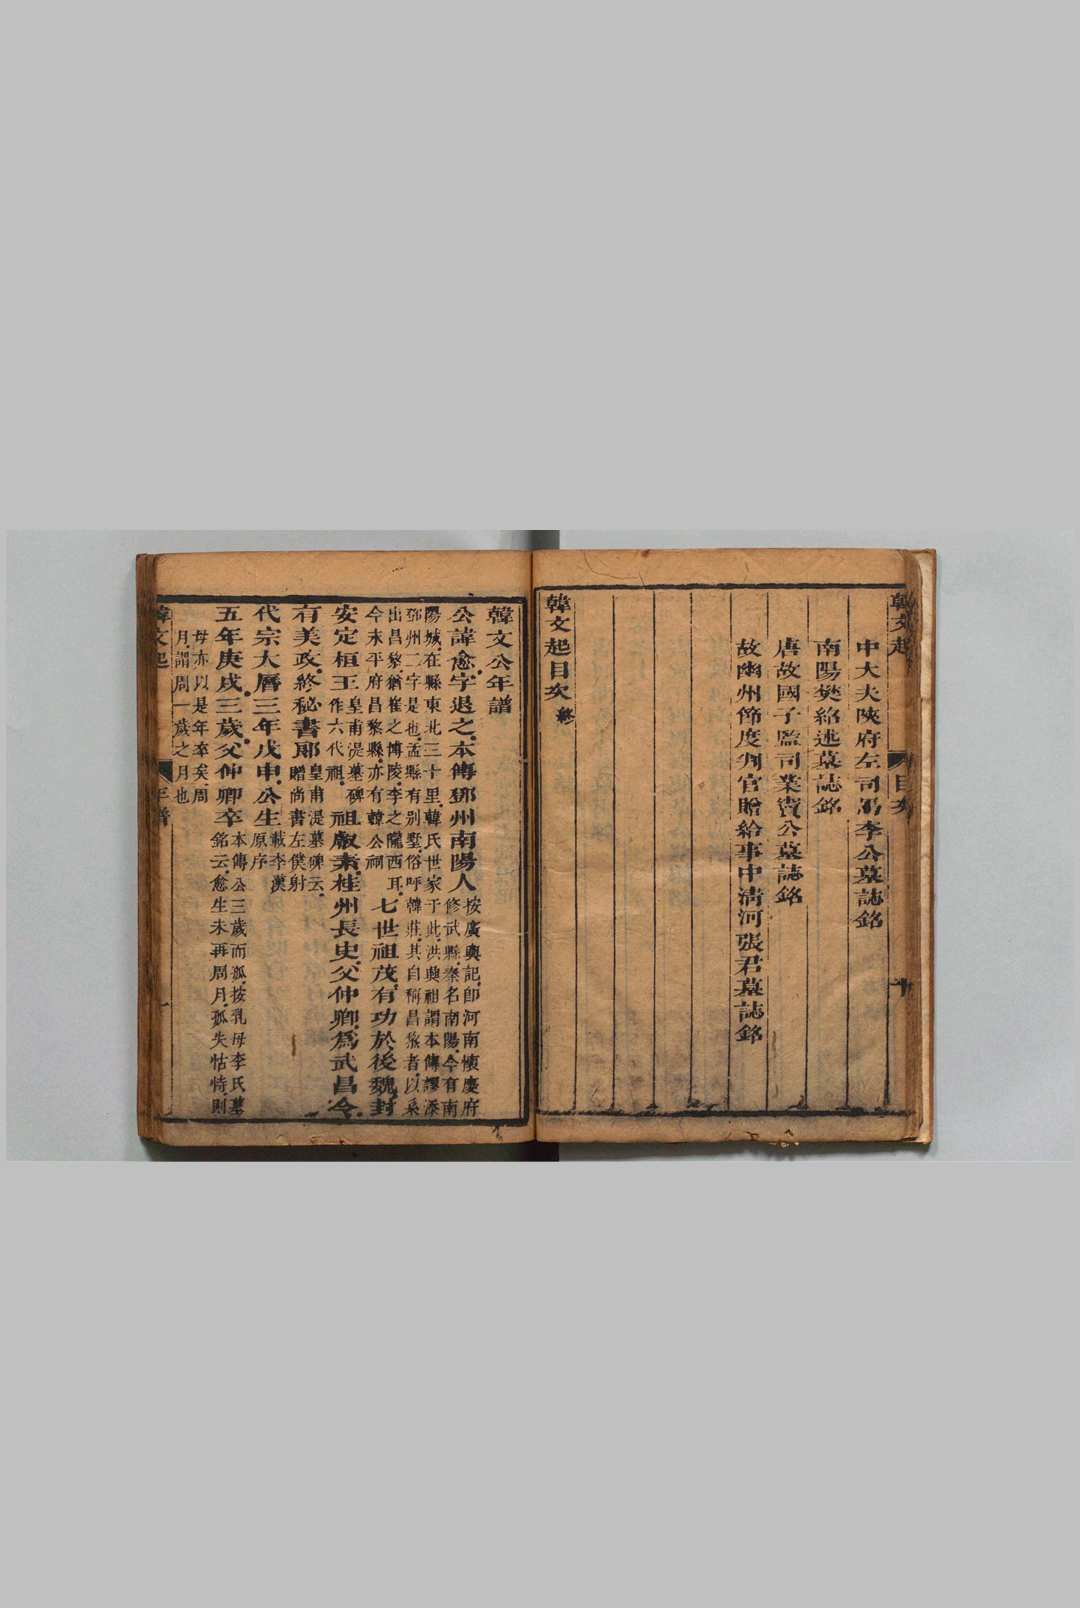 韓文起
目次
十
中大夫陝府左司馬李公墓誌銘
南陽樊紹述墓誌銘
唐故國子監司業竇公墓誌銘
故幽州節度判官贈給事中清河張君墓誌銘
韓文起目次終
韓文公年譜
公諱愈字退之本傳鄧州南陽人按廣輿記即河南懷慶府
修武縣秦名南陽今有南
陽城在縣東北三十里韓氏世家于此洪興祖謂本傳謬添
鄧州二字是也孟縣有別墅俗呼韓莊其自稱昌黎者以系
出昌黎猶崔之博陵李之隴西耳
今永平府昌黎縣亦有韓公祠七世祖茂有功於後魏封
安定桓王皇甫湜墓碑
作六代祖祖叡素桂州長史父仲卿為武昌令
有美政終秘書郎皇甫湜墓碑云
贈尚書左僕射
代宗大曆三年戊申公生載李漢
原序
五年庚戌三歲父仲卿卒本傳公三歲而孤按乳母李氏墓
銘云愈生未再周月孤失怙恃則
母亦以是年卒矣周
月謂周一歲之月也
韓文起
年譜
一